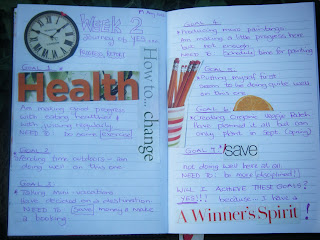 Week 2
Journey of YES
GOAL 1
Health
Am making good progress
with eating healthier &
with juicing regularly
NEED to do some exercise!
How to... change
GOAL 2
Spending time outdoors - am
doing well on this one
GOAL 3
Taking mini-vacations
have decided on a destination
NEED to save money & make
a booking
GOAL 4
Producing more paintings
Am making a little progress here
but not enough
NEED to schedule time for painting
GOAL 5
Putting myself first
seem to be doing quite well
on this one
GOAL 6
Creating Organic Veggie Patch
have planned it all but can
only plant in Sept (spring)
GOAL 7
save
not doing well here at all
NEED to be more disciplined!!
WILL I ACHIEVE THESE GOALS?
YES!!! because I have a
A Winner's Spirit!